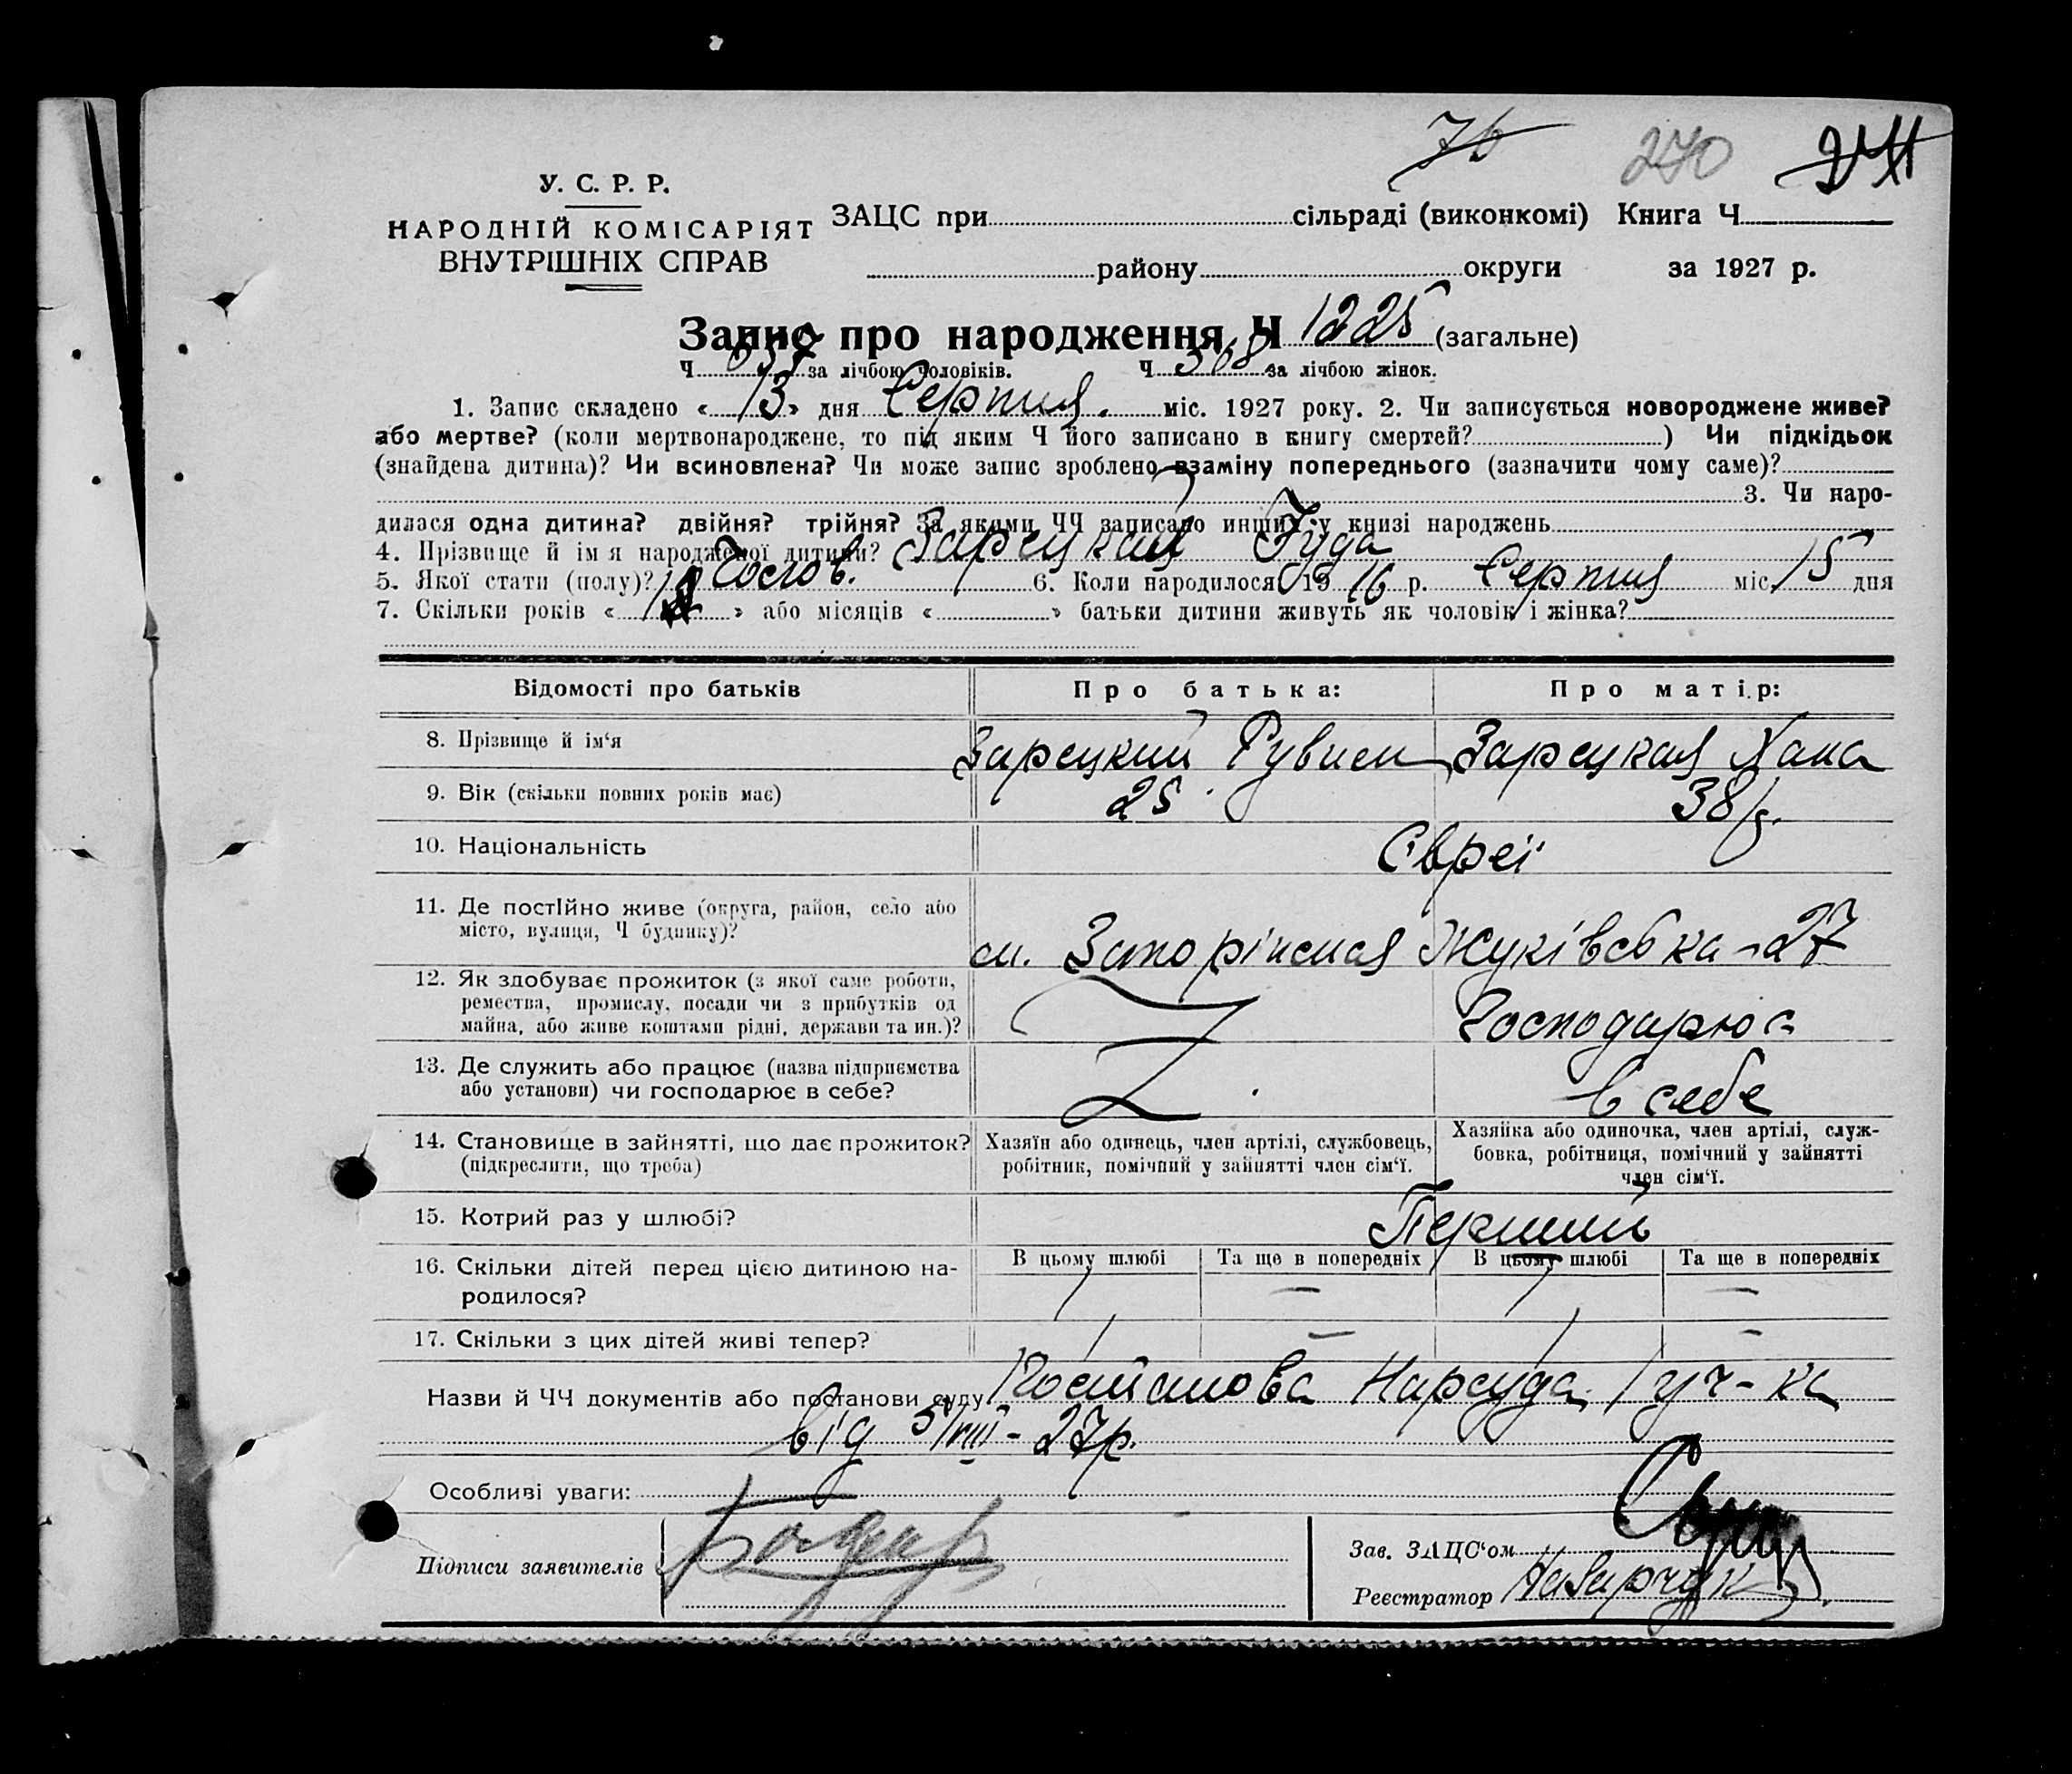 76 270
У. С. Р. Р.
НАРОДНІЙ КОМІСАРІЯТ
ВНУТРІШНІХ СПРАВ
ЗАЦС при сільраді (виконкомі) Книга Ч
району округи за 1927 р.
Запис про народження Ч 1225 (загальне)
Ч за лічбою чоловіків. Ч 568 за лічбою жінок.
1. Запис складено « 13 » дня Серпня. міс. 1927 року. 2. Чи записується новороджене живе?
або мертве? (коли мертвонароджене, то під яким Ч його записано в книгу смертей? ) Чи підкідьок
(знайдена дитина)? Чи всиновлена? Чи може запис зроблено взаміну попереднього (зазначити чому саме)?
3. Чи наро-
дилася одна дитина? двійня? трійня? За якими ЧЧ записано инших у книзі народжень
4. Прізвище й імя народженої дитини? Зарецкий Іуда
5. Якої стати (полу)? Чолов. 6. Коли народилося 1916 р. Серпня міс. 15 дня
7. Скільки років « » або місяців « » батьки дитини живуть як чоловік і жінка?
Відомості про батьків Про батька: Про матір:
8. Прізвище й ім'я Зарецкий Рувим Зарецкая Хана
9. Вік (скільки повних років має) 25 38 р.
10. Національність Євреї
11. Де постійно живе (округа, район, село або
місто, вулиця, Ч будинку)? м. Запоріжжя Жуківська-27
12. Як здобуває прожиток (з якої саме роботи,
ремества, промислу, посади чи з прибутків од
майна, або живе коштами рідні, держави та ин.)? Господарює
13. Де служить або працює (назва підприємства
або установи) чи господарює в себе? в себе
14. Становище в зайнятті, що дає прожиток?
(підкреслити, що треба)
Хазяїн або одинець, член артілі, службовець,
робітник, помічний у зайнятті член сім'ї.
Хазяйка або одиночка, член артілі, служ-
бовка, робітниця, помічний у зайнятті
член сім'ї.
15. Котрий раз у шлюбі? Перший
16. Скільки дітей перед цією дитиною на-
родилося?
В цьому шлюбі Та ще в попередніх В цьому шлюбі Та ще в попередніх
1 — 1 —
17. Скільки з цих дітей живі тепер? 1 — 1 —
Назви й ЧЧ документів або постанови суду Постанова Нарсуда 1 уч-ка
від 5/VIII-27р.
Особливі уваги:
Підписи заявителів
Зав. ЗАЦС'ом
Реєстратор